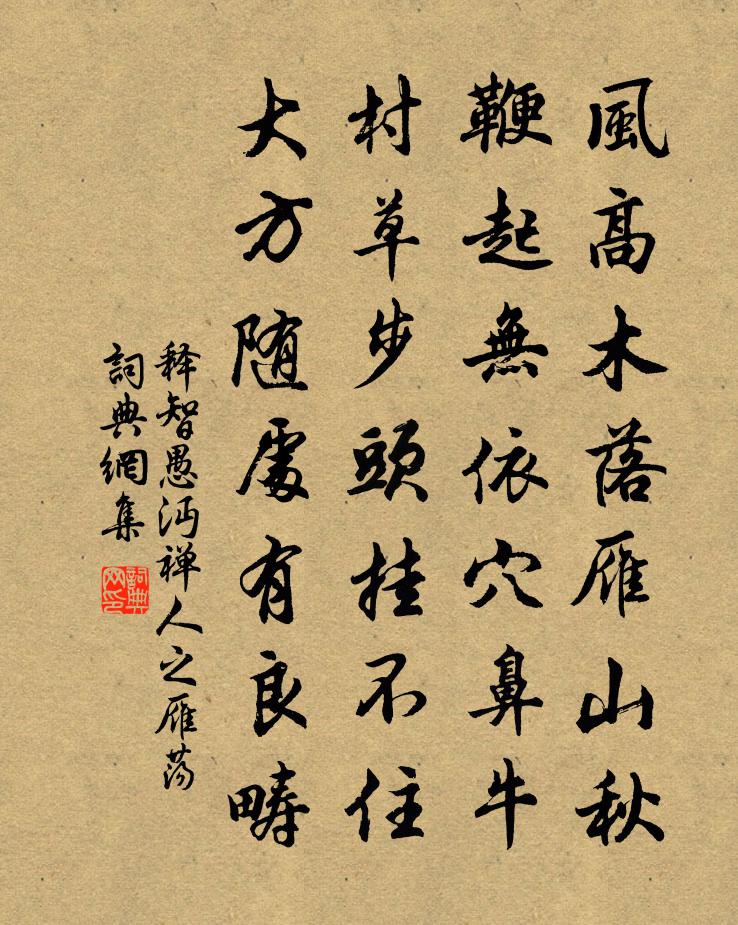 風高木落雁山秋
鞭起無依穴鼻牛
村草步頭挂不住
大方随處有良疇
释智愚沔禅人之雁荡
詞典網集
詞典网印